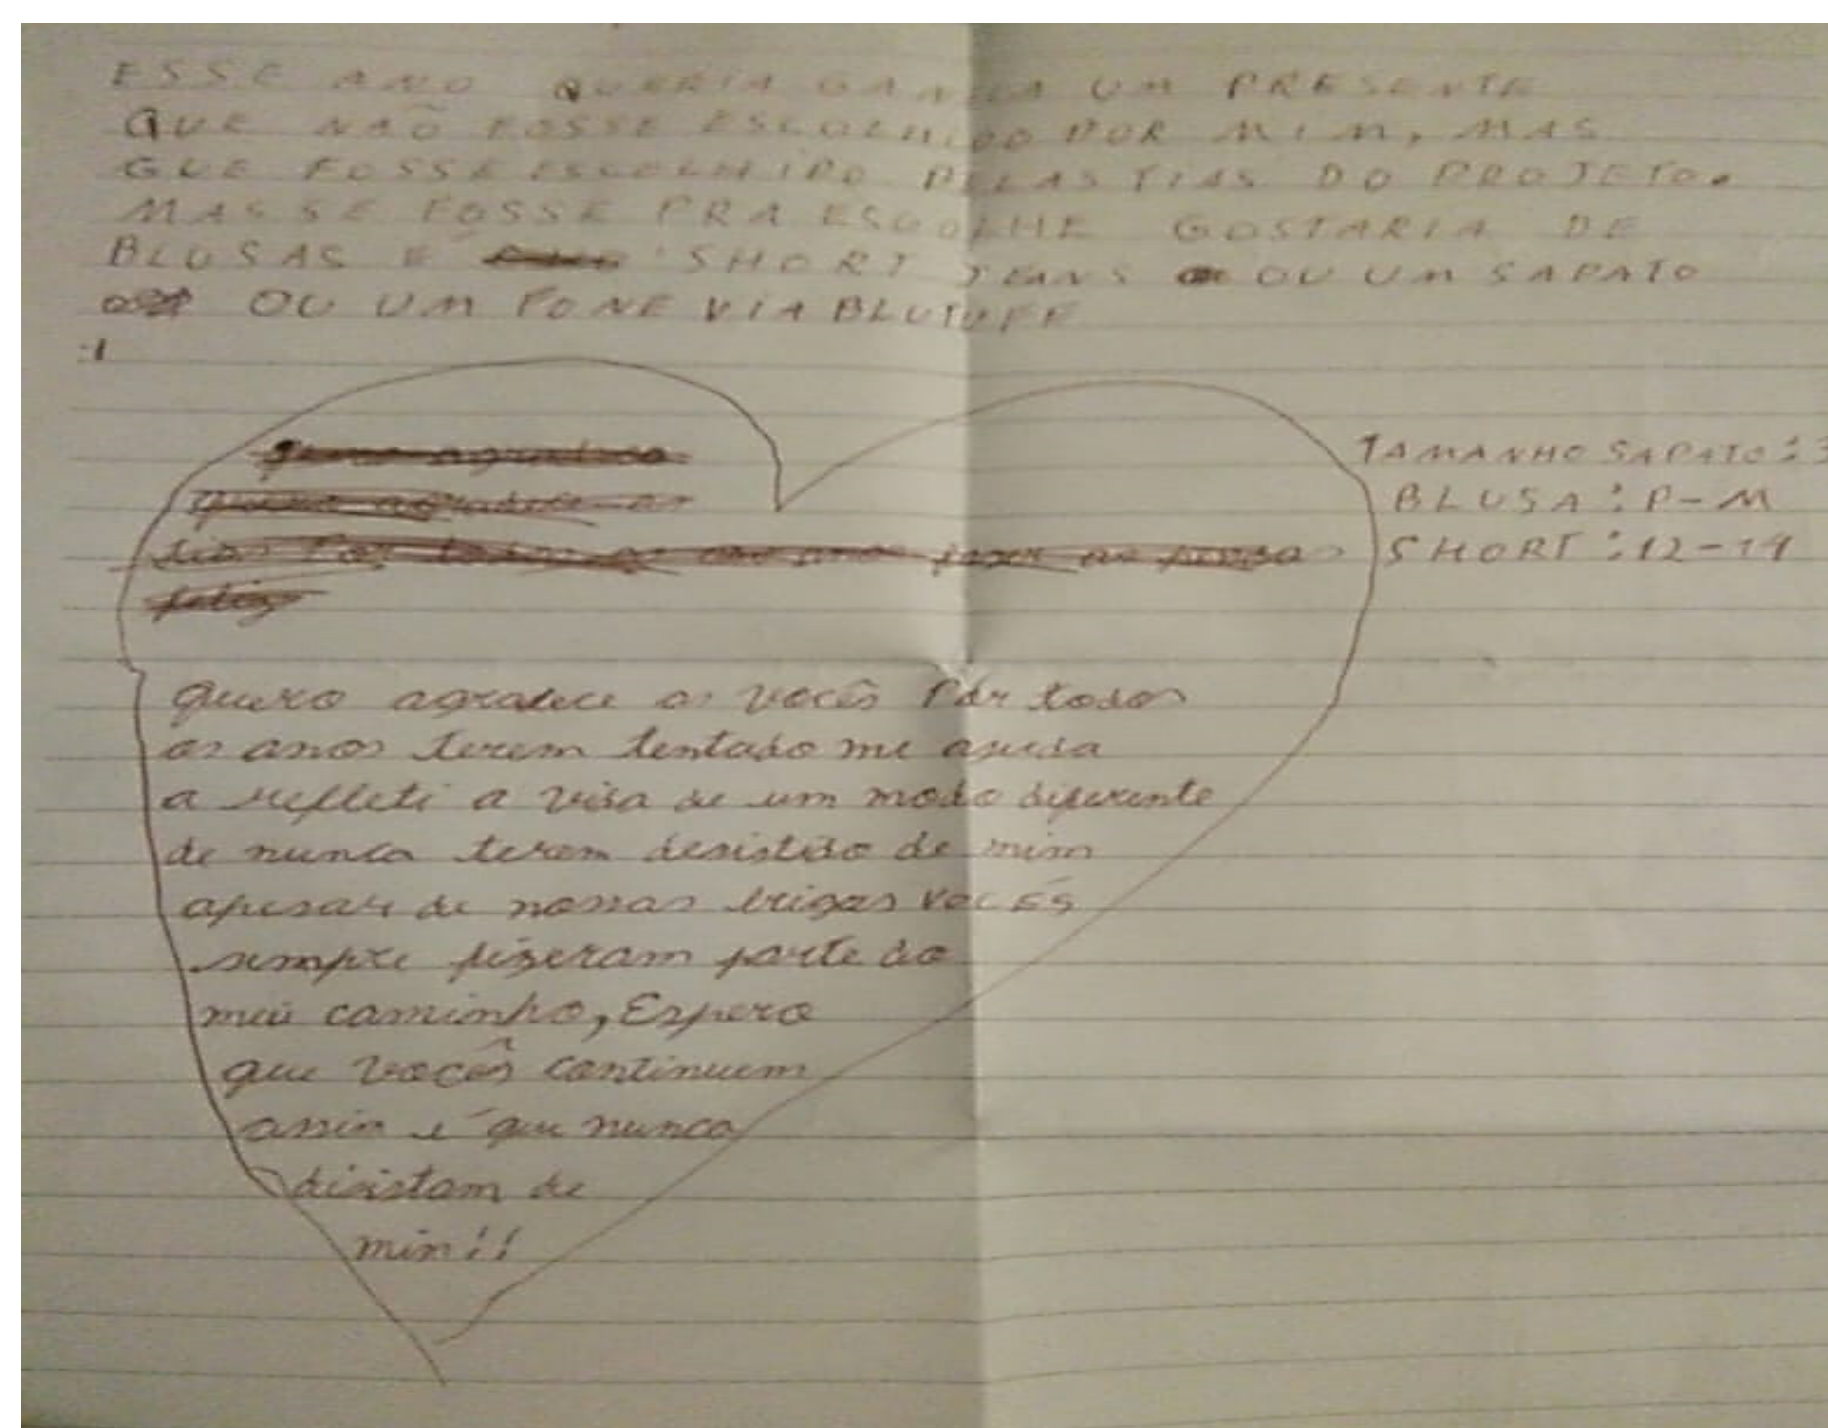 ESSE ANO QUERIA GANHA UM PRESENTE
QUE NAÕ FOSSE ESCOLHIDO POR MIM, MAS
QUE FOSSE ESCOLHIDO PELAS TIAS DO PROJETO.
MAS SE FOSSE PRA ESCOLHE GOSTARIA DE
BLUSAS E SHORT JEANS OU UM SAPATO
OU UM FONE VIA BLUTUFF
TAMANHO SAPATO: 3
BLUSA: P-M
SHORT: 12-14
quero agradece
quero agradece as
tias Por todos os anos fazer as
feliz
quero agradece as vocês Por todos
os anos terem tentado me ajuda
a refleti a vida de um modo diferente
de nunca terem desistido de mim
apesar de nossas brigas vocÊs
sempre fizeram parte do
meu caminho, Espero
que vocês continuem
assin é que nunca
disistam de
min!!